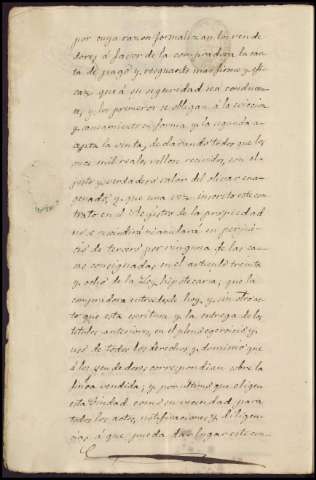 por cuya razon formalizan los vende
dores á favor de la compradora la car
ta de pago y resguardo mas firme y efi
caz que á su seguridad sea conducen
te, y los primeros se obligan á la eviccion
y saneamiento en forma y la segunda a
cepta la venta, declarando todos que los
once mil reales vellon recividos, son el
justo y verdadero valor del olivar enag
enado, y que una vez inscrito este con
trato en el Registro de la propiedad
no se rescindirá ni anulará en perjui
cio de tercero por ninguna de las cau
sas consignadas en el articulo treinta
y ocho de la Ley hipotecaria; que la
compradora entra desde hoy, y sin otro ac
to que esta escritura y la entrega de los
titulos anteriores, en el pleno egercicio y
uso de todos los derechos y dominio que
á los vendedores correspondian sobre la
finca vendida; y por ultimo que eligen
esta Ciudad como su vecindad para
todos los actos, notificaciones y diligen
cias á que pueda dar lugar este con